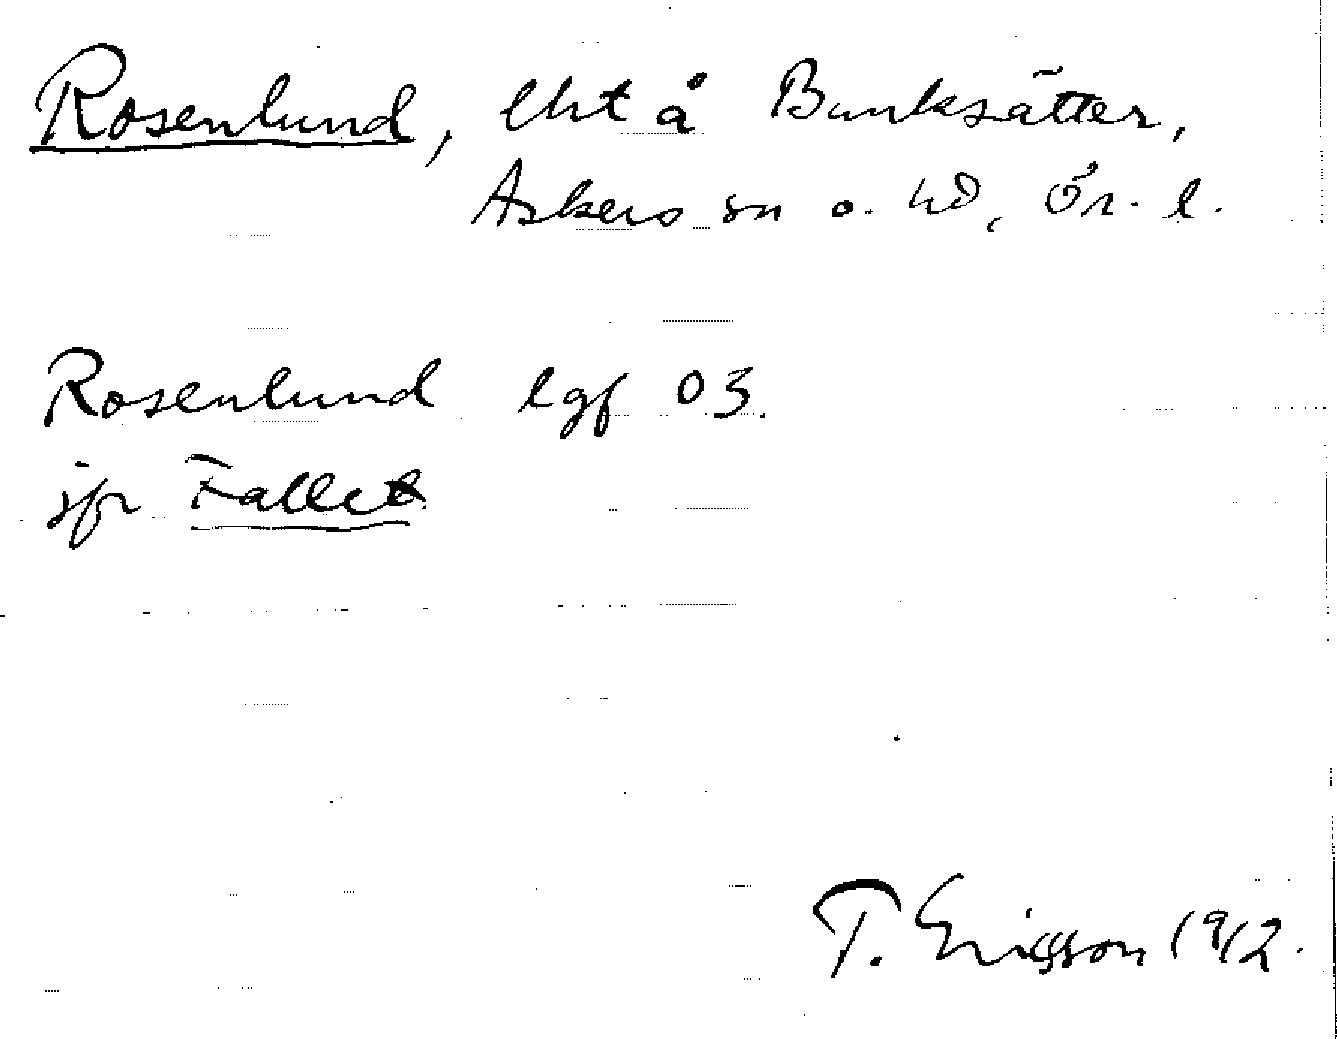 Rosenlund, lht å Bunksätter,
Askers sn o. hd, Ör. l.
Rosenlund lgf 03.
jfr Fallet
T. Ericsson 1912.